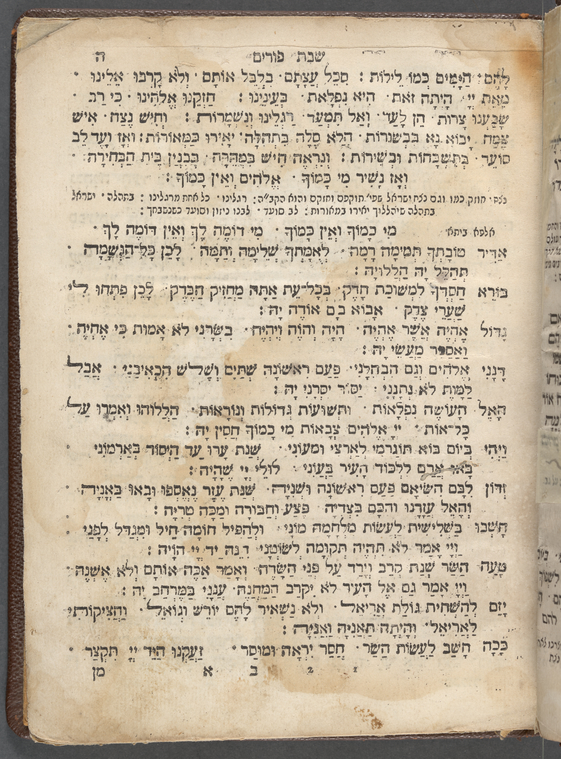 שבת פורים ה
לָהֶם: הַיָּמִים כְּמוֹ לֵילוֹת: סִכֵּל עֲצָתָם בִּלְבֵּל אוֹתָם וְלֹא קָרְבוּ אֵלֵינוּ
מֵאֵת יְיָ הָיְתָה זֹאת הִיא נִפְלָאת בְּעֵינֵינוּ: חָזְקֵנוּ אֱלֹהֵינוּ כִּי רַב
שָׂבַעְנוּ צָרוֹת הֵן לָעַד וְאַל תִּמְעַד רַגְלֵינוּ וְנִשְׁמְרוֹת: וְחִישׁ נֵצַח אִישׁ
צֶמַח יָבוֹא נָא בִּבְשׂוֹרוֹת הֲלֹא סֶלָה בִּתְהִלָּה יָאִירוּ כַּמְּאוֹרוֹת: וְאָז וָעַד לֵב
סוֹעֵד בְּתִשְׁבָּחוֹת וּבְשִׁירוֹת: וְנִרְאֶה חִישׁ בִּמְהֵרָה בְּבִנְיַן בֵּית הַבְּחִירָה
וְאָז נָשִׁיר מִי כָמוֹךָ אֱלֹהִים וְאֵין כָּמוֹךָ:
בתהלה שיהללוך יאירו כמאורות: לב סועד לבנו ניזון וסועד כשנשבחך:
אלפא ביתא מִי כָמוֹךָ וְאֵין כָּמוֹךָ מִי דוֹמֶה לָךְ וְאֵין דּוֹמֶה לָךְ
אַדִּיר טוֹבָתְךָ תְּמִימָה רָמָה לְאֻמָּתְךָ שְׁלֵימָה וְתַמָּה לָכֵן כָּל הַנְּשָׁמָה
תְּהַלֵּל יָהּ הַלְלוּיָהּ:
בּוֹרֵא חַסְדְּךָ לִמְשׁוּכַת הֶדֶק בְּכָל עֵת אַתָּה מַחֲזִיק הַבֶּדֶק לָכֵן פִּתְחוּ לִי
שַׁעֲרֵי צֶדֶק אָבוֹא בָם אוֹדֶה יָהּ:
גָּדוֹל אֶהְיֶה אֲשֶׁר אֶהְיֶה הָיָה וְהוֹוֶה וְיִהְיֶה בִּשְּׂרַנִי לֹא אָמוּת כִּי אֶחְיֶה
וַאֲסַפֵּר מַעֲשֵׂי יָהּ:
דָּנַנִי אֱלֹהִים וְגַם הַבְחִרַנִי פַּעַם רִאשׁוֹנָה שְׁתַּיִם וְשָׁלֹשׁ הִכְאִיבַנִי אֲבָל
לַמָּוֶת לֹא נְתָנַנִי יַסֹּר יִסְּרַנִי יָהּ:
הָאֵל הָעוֹשֶׂה נִפְלָאוֹת וּתְשׁוּעוֹת גְּדוֹלוֹת וְנוֹרָאוֹת הַלְלוּהוּ וְאִמְרוּ עַל
כָּל אוֹת יְיָ אֱלֹהִים צְבָאוֹת מִי כָמוֹךָ חֲסִין יָהּ:
וַיְהִי בְּיוֹם בּוֹא תּוֹגַרְמִי לְאַרְצִי וּמְעוֹנִי שְׁנַת עָרוּ עַד הַיְסוֹד בְּאַרְמוֹנִי
בָּא אֲרָם לִלְכּוֹד הָעִיר בַּעֲוֹנִי לוּלֵי יְיָ שֶׁהָיָה:
זְדוֹן לִבָּם הִשִּׁיאָם פַּעַם רִאשׁוֹנָה וּשְׁנִיָּה שְׁנַת עֵזֶר נֶאֶסְפוּ וּבָאוּ בָּאֳנִיָּה
וְהָאֵל עֲזָרָנוּ וְהִכָּם בִּצְדִיָּה פֶּצַע וְחַבּוּרָה וּמַכָּה טְרִיָּה:
חָשְׁבוּ בַּשְּׁלִישִׁית לַעֲשׂוֹת מִלְחָמָה מוֹנַי וּלְהַפִּיל חוֹמָה חֵיל וּמִגְדָּל לְפָנַי
וַיְיָ אָמַר לֹא תִהְיֶה תְקוּמָה לְשׂוֹטְנַי הִנֵּה יַד יְיָ הוֹיָה:
טָעָה הַשַּׂר שְׁנַת קָרֵב וְיָרַד עַל פְּנֵי הַשָּׂדֶה וְאָמַר אַכֶּה אוֹתָם וְלֹא אֶשְׁנֶה
וַיְיָ אָמַר גַּם אֶל הָעִיר לֹא יִקְרַב הַמַּחֲנֶה עָנָנִי בַמֶּרְחָב יָהּ:
יָזַם לְהַשְׁחִית גּוֹלַת אֲרִיאֵל וְלֹא נַשְׁאִיר לָהֶם יוֹרֵשׁ וְגוֹאֵל וַהֲצִיקוֹתִי
לַאֲרִיאֵל וְהָיְתָה תַאֲנִיָּה וַאֲנִיָּה:
כָּכָה חָשַׁב לַעֲשׂוֹת הַשַּׂר חֲסַר יִרְאָה וּמוּסָר זָעַקְנוּ הֲיַד יְיָ תִּקְצַר
א ב 2 1 מן